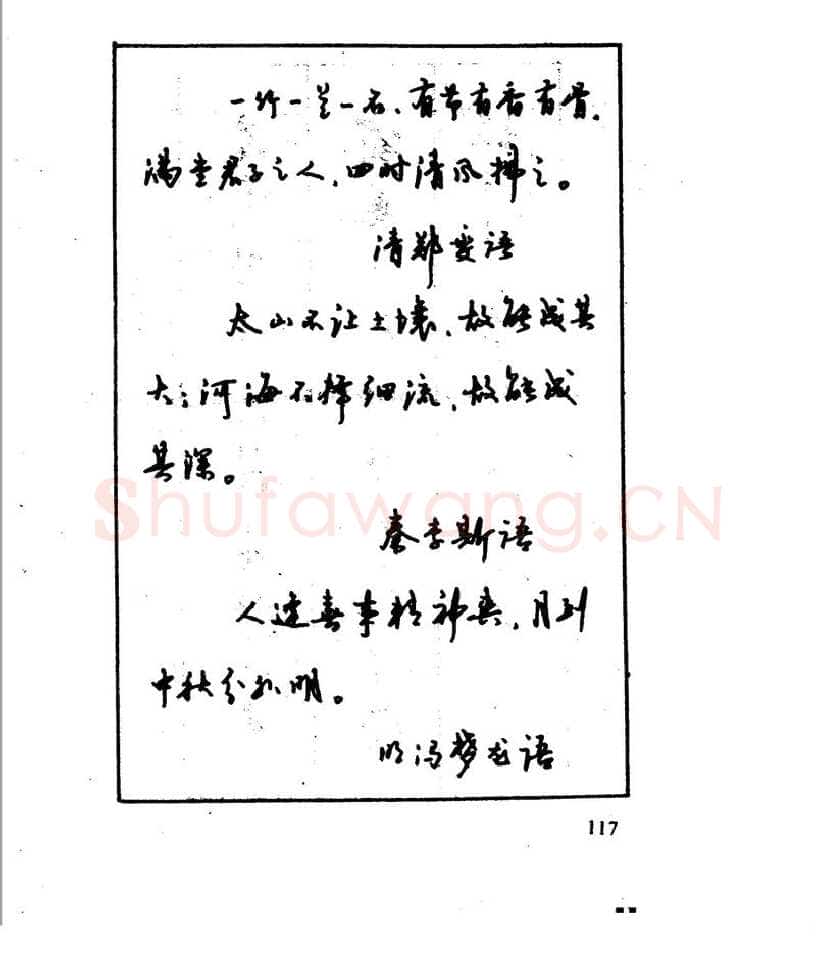 一竹一兰一石，有节有香有骨，
满堂君子之人，四时清风拂之。
清郑燮语
太山不让土壤，故能成其
大；河海不择细流，故能成
其深。
秦李斯语
人逢喜事精神爽，月到
中秋分外明。
明冯梦龙语
Shufawang.CN
117